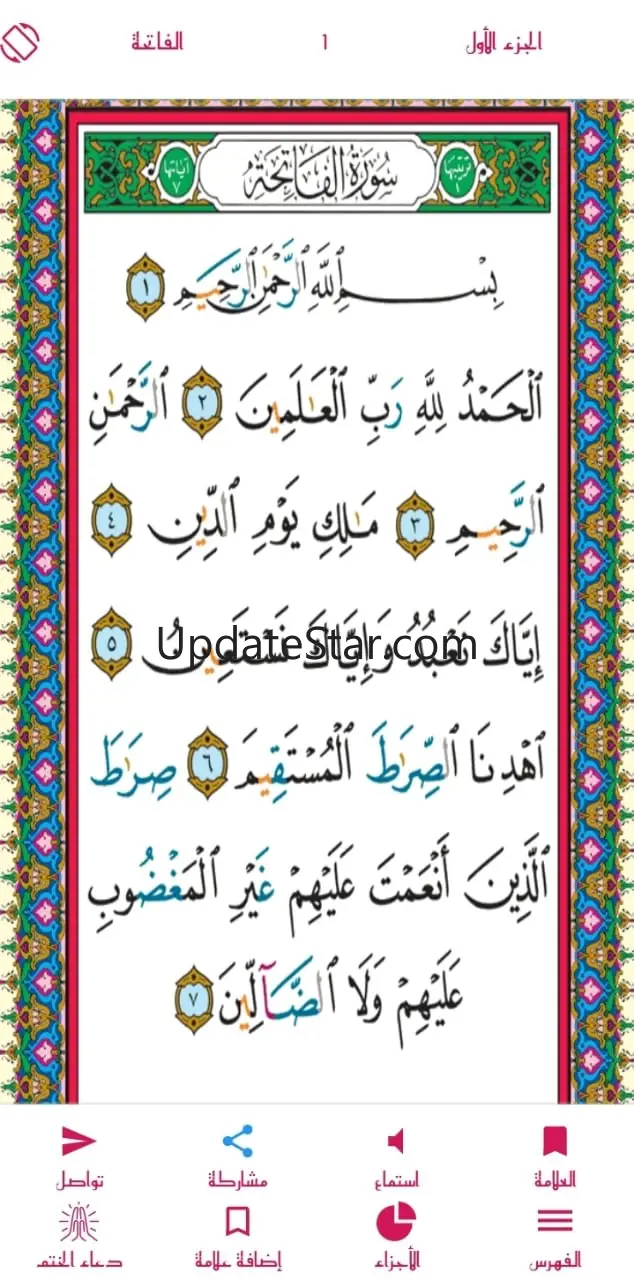 الجزء الأول 1 الفاتحة
ترتيبها ١ سُورَةُ الفَاتِحَةِ آياتها ٧
بِسْمِ ٱللَّهِ ٱلرَّحْمَٰنِ ٱلرَّحِيمِ ١
ٱلْحَمْدُ لِلَّهِ رَبِّ ٱلْعَٰلَمِينَ ٢ ٱلرَّحْمَٰنِ
ٱلرَّحِيمِ ٣ مَٰلِكِ يَوْمِ ٱلدِّينِ ٤
إِيَّاكَ نَعْبُدُ وَإِيَّاكَ نَسْتَعِينُ ٥
UpdateStar.com
ٱهْدِنَا ٱلصِّرَٰطَ ٱلْمُسْتَقِيمَ ٦ صِرَٰطَ
ٱلَّذِينَ أَنْعَمْتَ عَلَيْهِمْ غَيْرِ ٱلْمَغْضُوبِ
عَلَيْهِمْ وَلَا ٱلضَّآلِّينَ ٧
العلامة استماع مشاركة تواصل
الفهرس الأجزاء إضافة علامة دعاء الختم